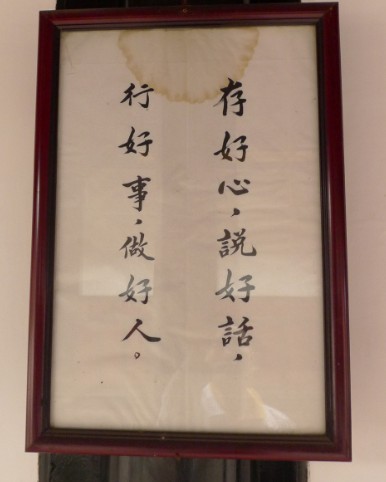 存好心，說好話，
行好事，做好人。